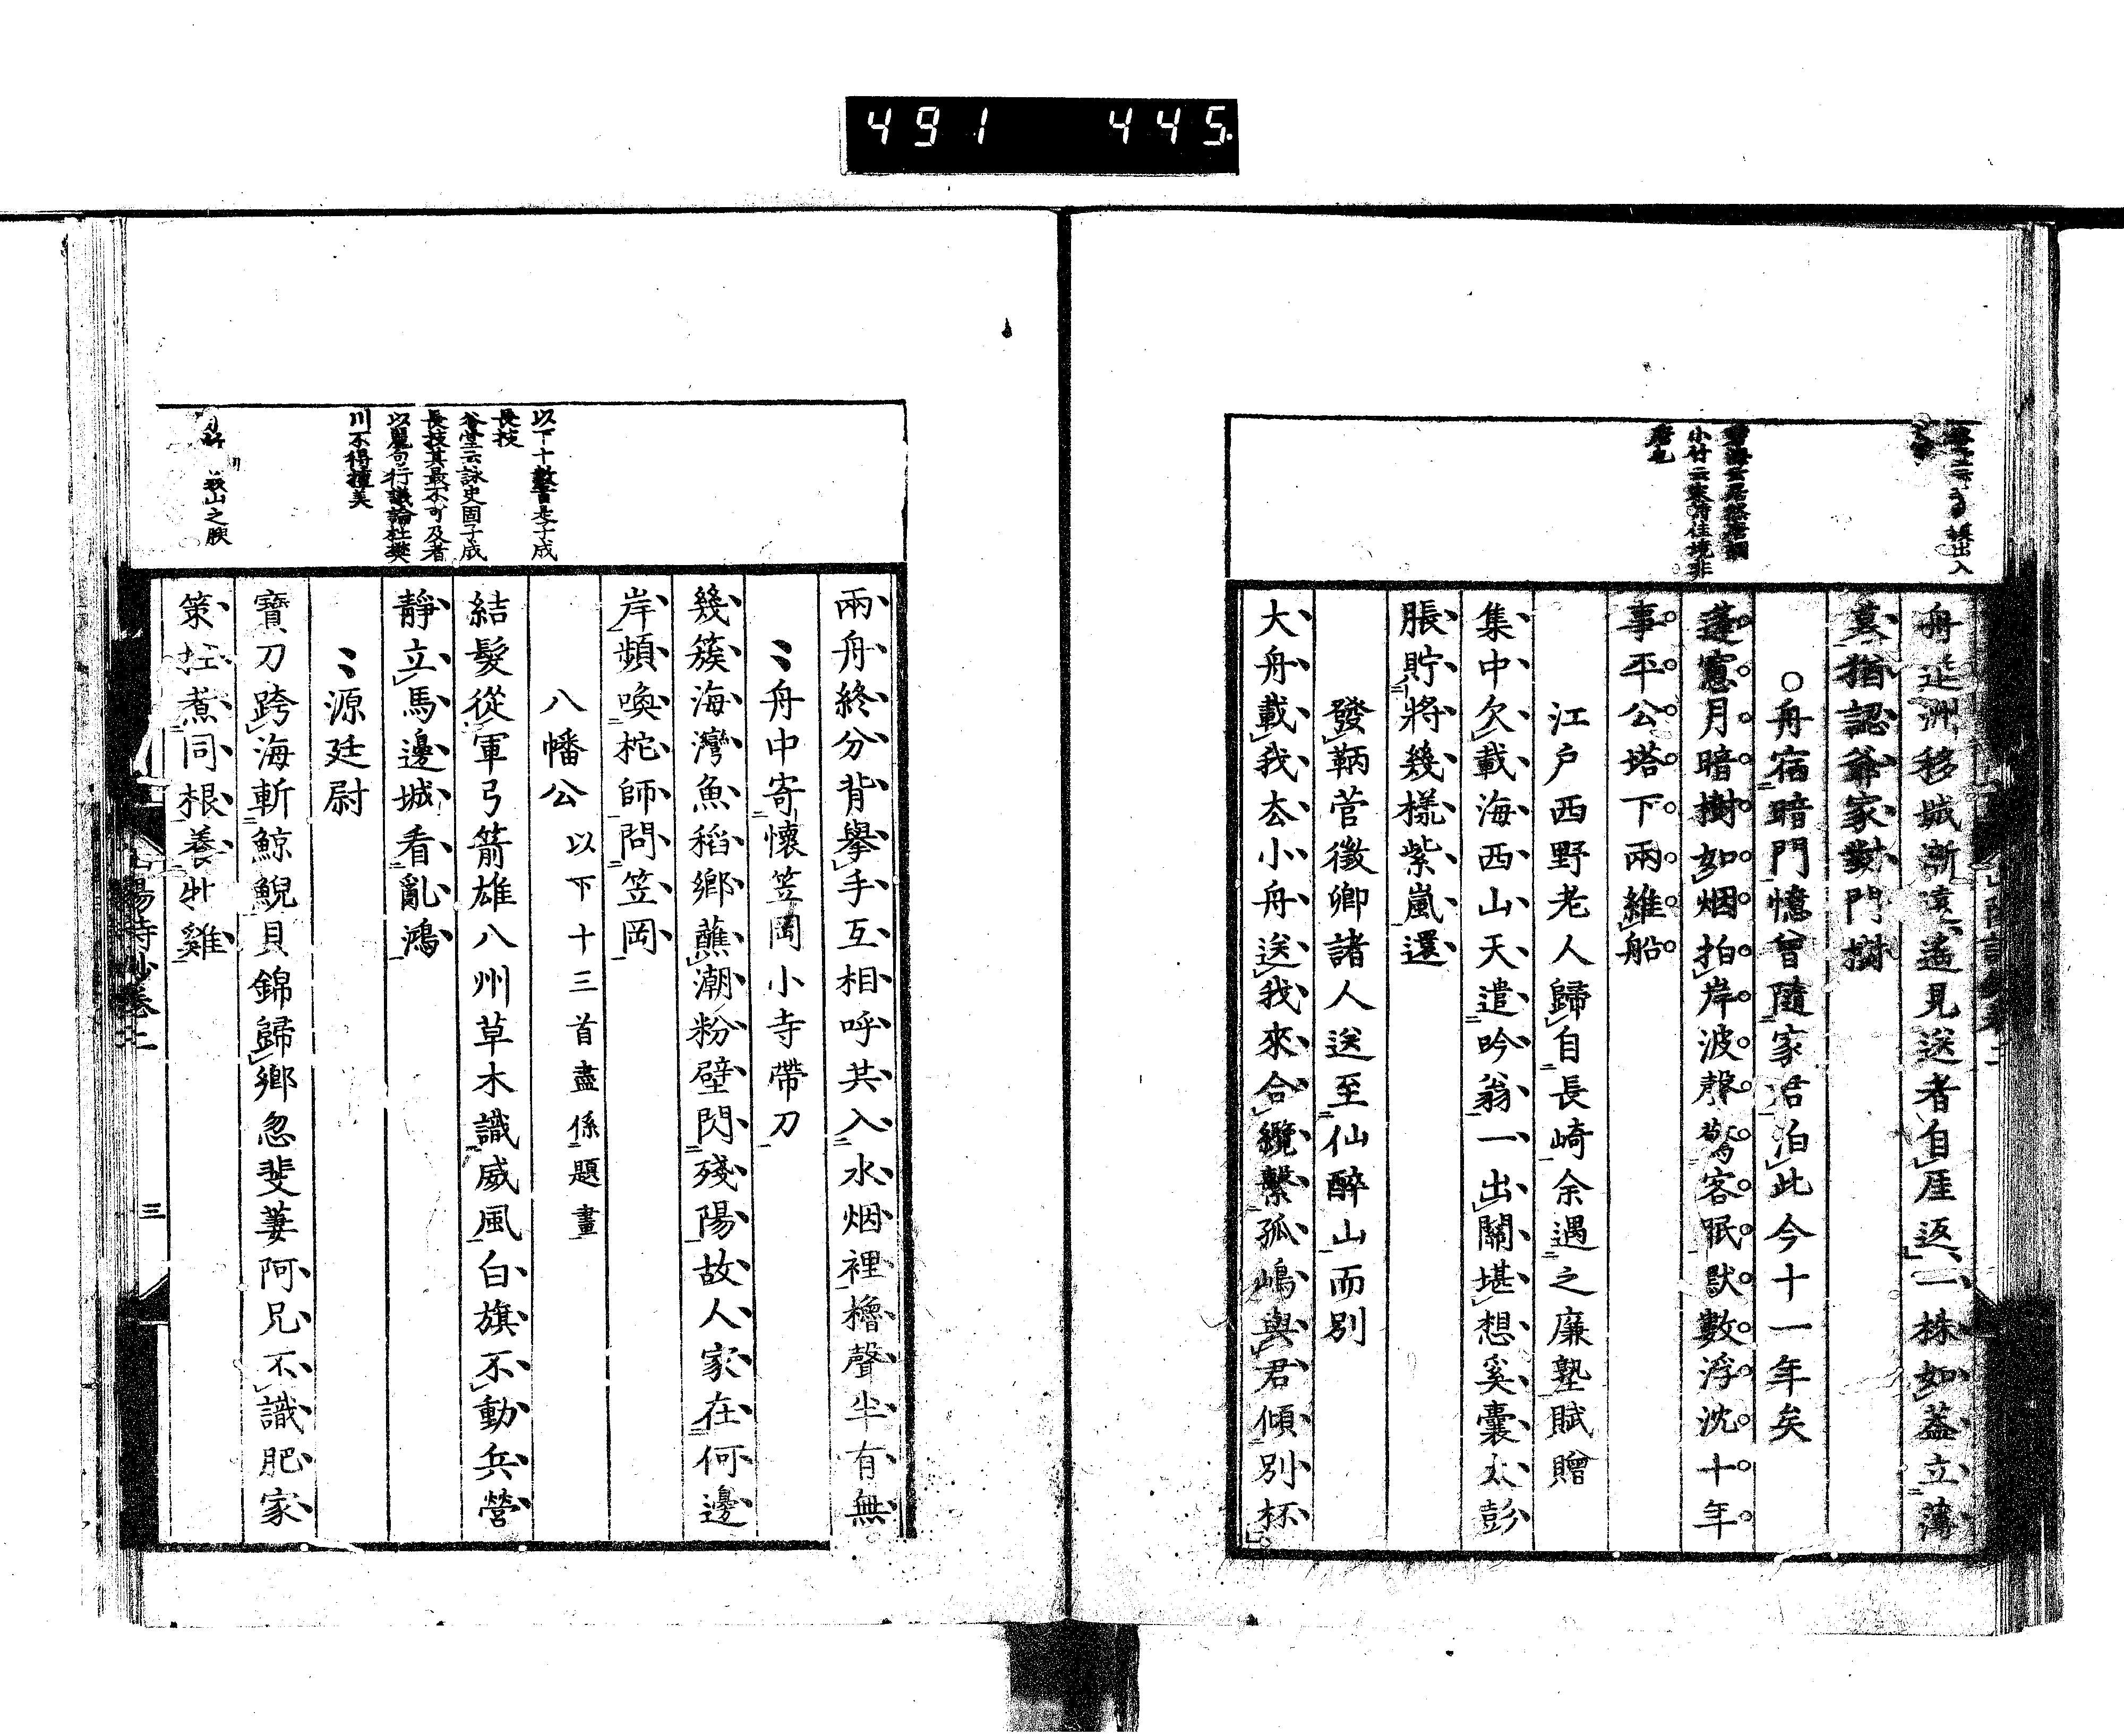 491 445
舟進洲移城漸遠遙見送者自厓返一株如蓋立薄
莫猶認爺家對門樹
○舟宿暗門憶曾隨家君泊此今十一年矣
蓬窻月暗樹如烟拍岸波聲驚客眠默數浮沈十年
事平公塔下兩維船
江戶西野老人歸自長崎余遇之廉塾賦贈
集中欠載海西山天遣吟翁一出關堪想奚囊太彭
脹貯將幾樣紫嵐還
發鞆菅徵卿諸人送至仙醉山而別
大舟載我去小舟送我來合纜繫孤嶋與君傾別杯
小竹云
唐也
以下十數首是子成
長技
谷堂云詠史固子成
長技其最不可及者
以麗句行議論杜樊
川不得擅美
兩舟終分背擧手互相呼共入水烟裡櫓聲半有無
舟中寄懷笠岡小寺帶刀
幾簇海灣魚稻鄉蘸潮粉壁閃殘陽故人家在何邊
岸頻喚柁師問笠岡
八幡公 以下十三首盡係題畫
結髮從軍弓箭雄八州草木識威風白旗不動兵營
靜立馬邊城看亂鴻
源廷尉
寶刀跨海斬鯨鯢貝錦歸鄉忽斐萋阿兄不識肥家
策枉煮同根養牝雞
三